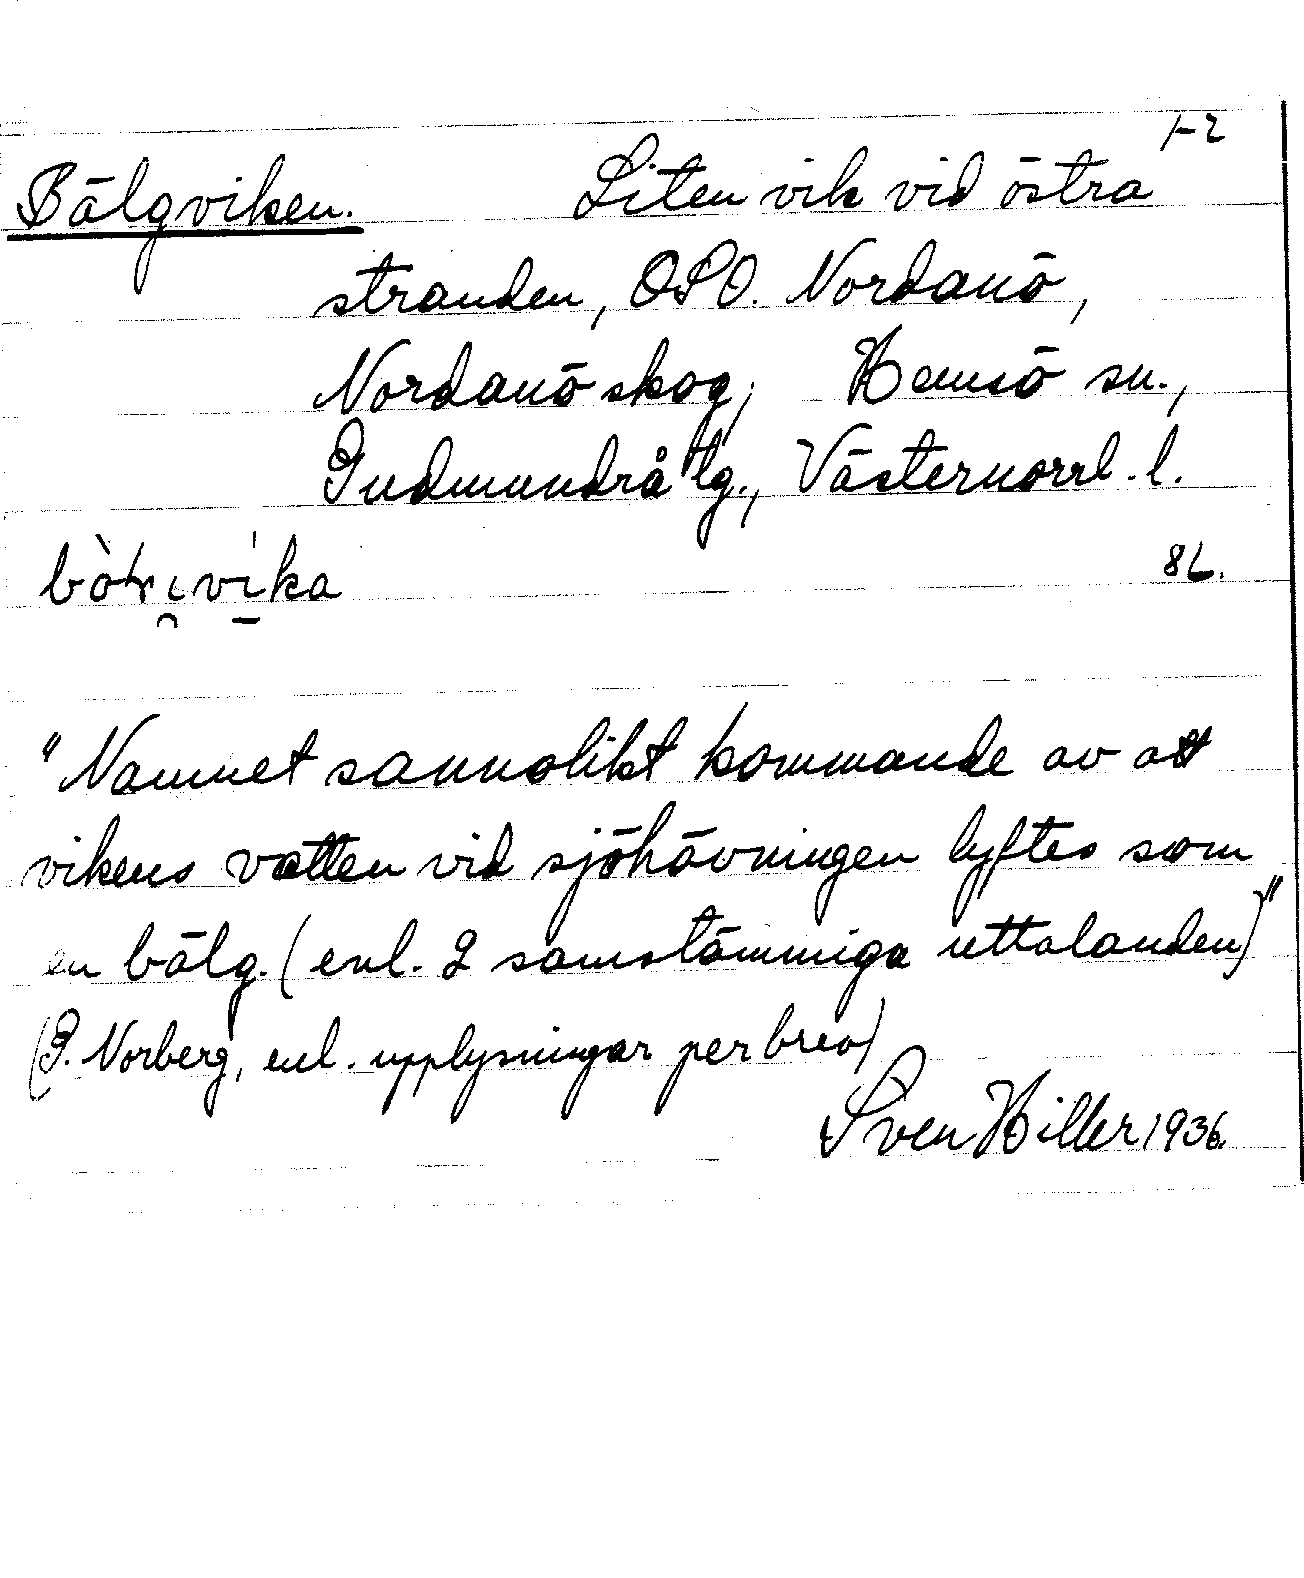 1-2
Bälgviken. Liten vik vid östra
stranden, OSO. Nordanö,
Nordanö skog, Hemsö sn.,
Gudmundrå tg., Västernorrl. l.
vika 8L.
"Namnet sannolikt kommande av att
vikens vatten vid sjöhävningen lyftes som
en bälg. (enl. 2 samstämmiga uttalanden)"
(P. Norberg, enl. upplysningar per brev)
Sven Hiller 1936.